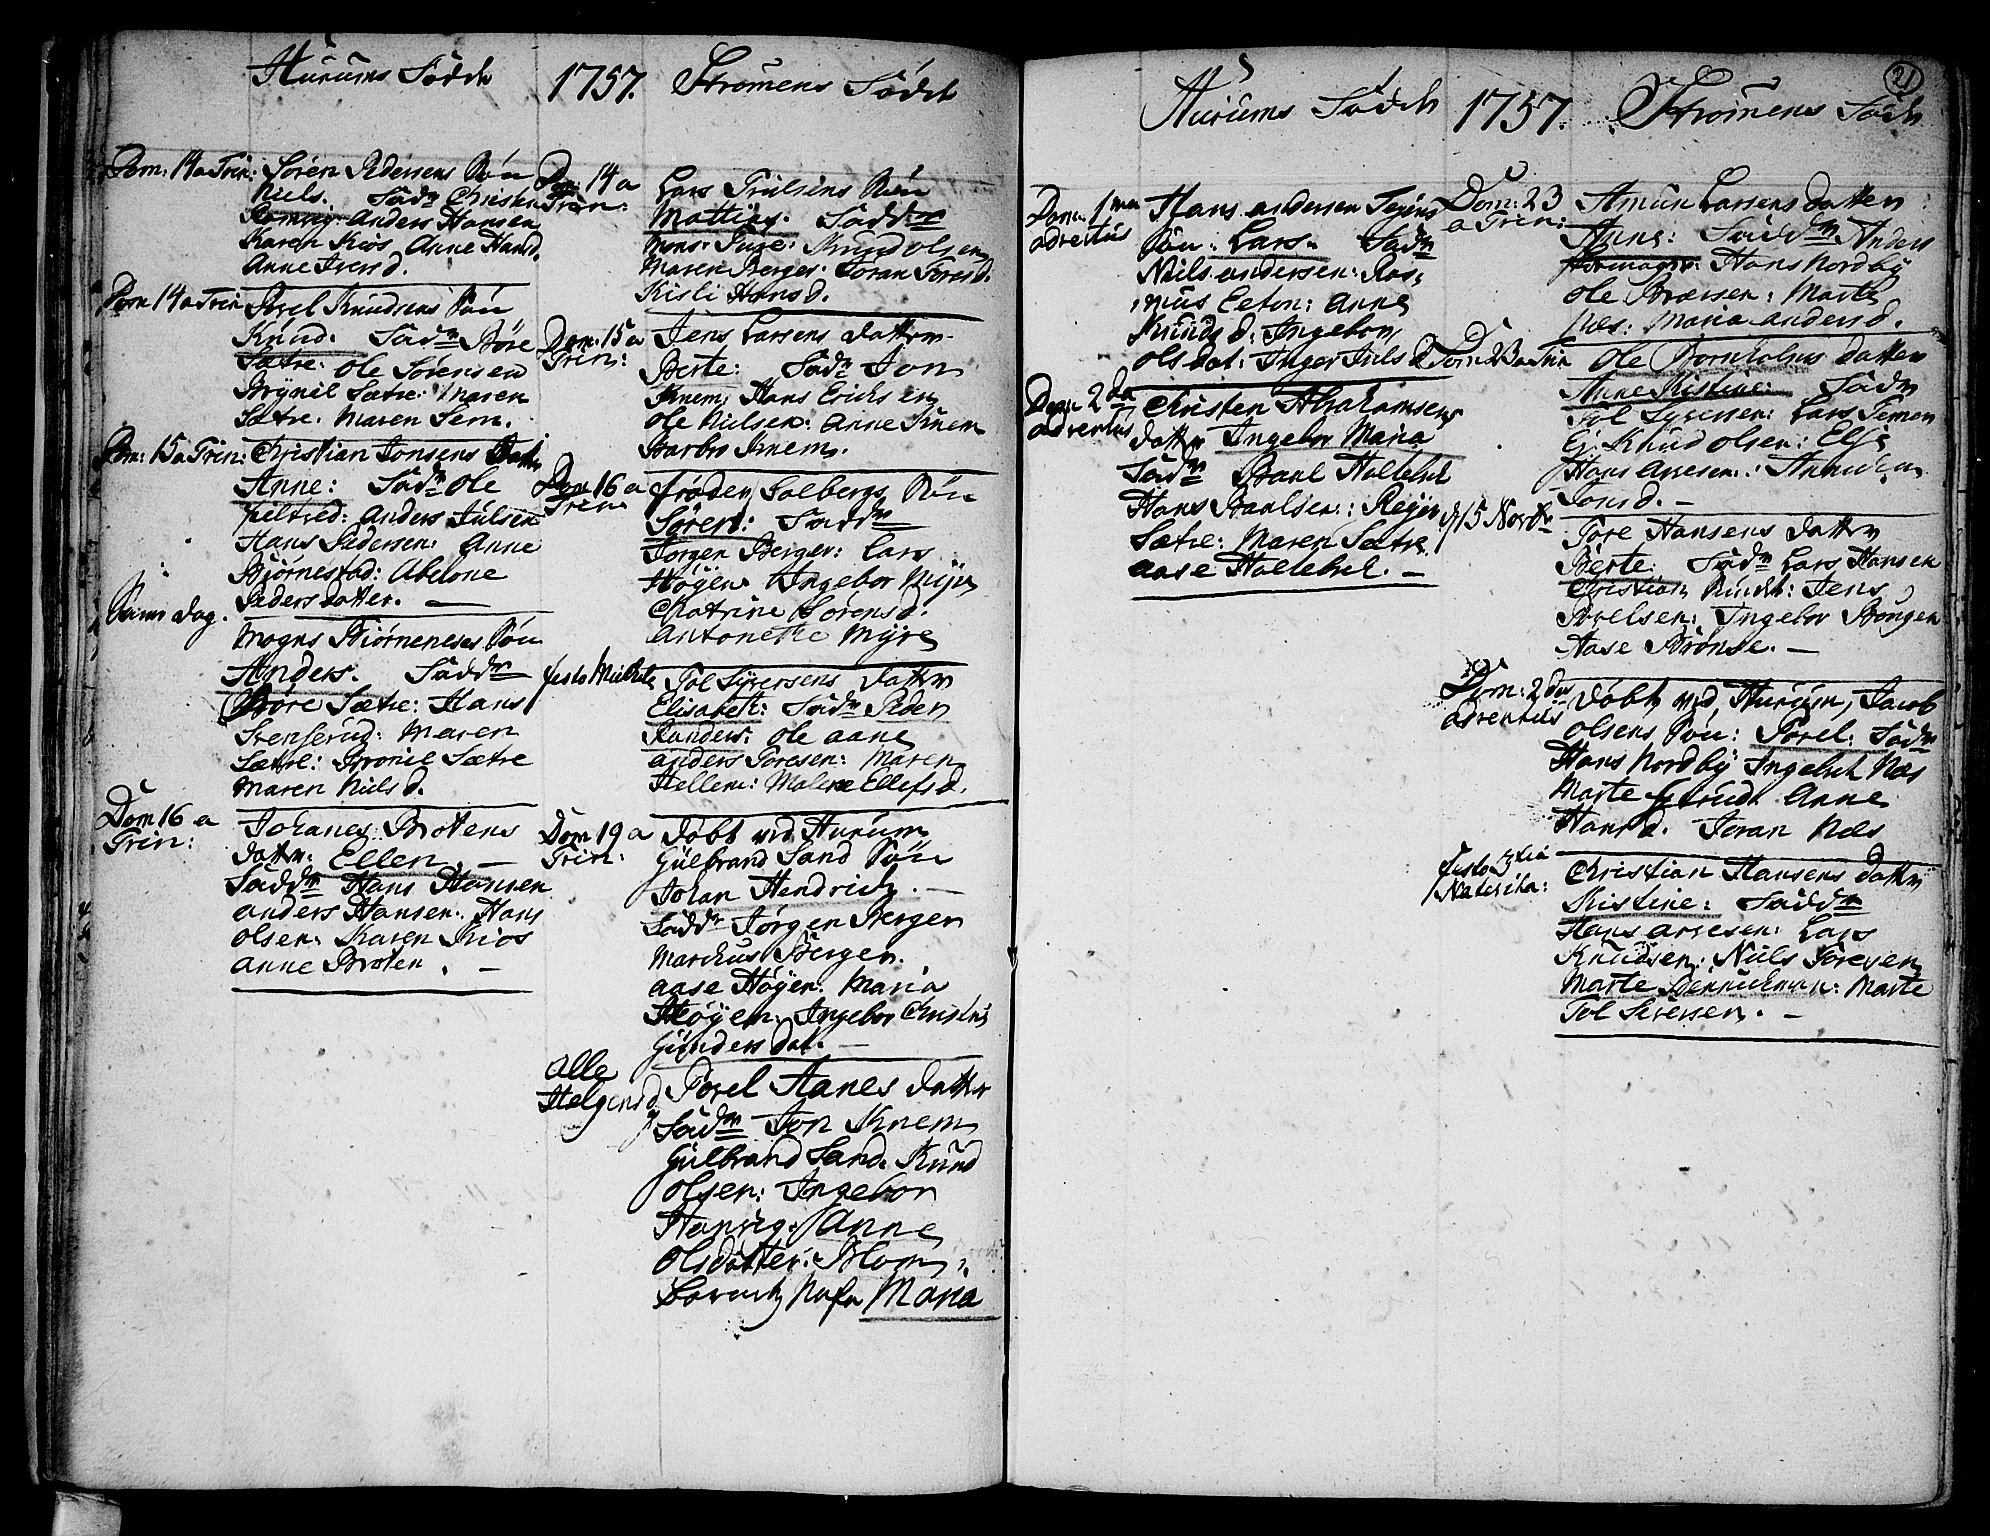 Hurums Födde 1757. Strömens Födde
Dom: 14 a Trin: Sören Pedersens Sön
Niels. Fadr Christen
Anders Hansen
Karen Kiös Anne Hansd.
Anne Iversd.
Dom 14 a Trin Povel Knudsens Sön
Knud: Fadr Tore
Sætre: Ole Sörensen
Brynil Sætre: Maren
Sætre: Maren Sem.
Dom: 15 a Trin: Christian Jonsens Datter
Anne: Fadr Ole
Anders Julsen
Hans Pedersen: Anne
Biörnestad: Abelone
Peders datter. —
Samme dag. Mogns Biörnenses Sön
Anders. Faddr
Tore Sætre: Hans
Stenserud: Maren
Sætre: Bronil Sætre
Maren Nielsd.
Dom 16 a Trin: Johanes Brotens
Datter: Ellen. —
Faddr Hans Hansen
Anders Hansen: Hans
Olsen: Karen Kios
Anne Broten. —
Dom: 14 a Trin: Lars Trulsens Sön
Mattias. Faddr
Mons: Knud Olsen
Maren Berger: Joran Toresd.
Kisli Hansd.
Dom: 15 a Trin: Jens Larsens Datter
Berte: Fadr Jon
Knem, Hans Ericksen
Ole Nielsen: Anne Knem
Barbro Knem.
Dom 16 a Trin Solbergs Sön
Sören: Faddr
Jörgen Berger: Lars
Höyen Ingebor Myre
Chatrine Sörensd.
Antonette Myre
festo Michels Tol Syversens Datter
Elisabett: Fadr Peder
Randers: Ole Aane
Anders Toresen: Maren
Hellem: Malene Ellefsd.
Dom 19 a Trin: Döbt ved Hurum
Gulbrand Sand Sön
Johan Hendrich. —
Faddr Jörgen Berger
Marchus Berger.
Aase Höyen: Maria
Höyen: Ingebor Christens
Gunders dat. —
Alle Helgensd Povel Aanes Datter
Fadr Jon Knem
Gulbrand Sand. Knud
Olsen: Ingebor
Anne
Olsdatter:
Barnets Nafn Maria
21
Hurums Födde 1757. Strömens Födde
Dom. 1ma adventus Hans Andersen
Sön: Lars. Fadr
Niels Andersen: Ras,
mus Eeton: Anne
Knudsd: Ingebor
Olsdat: Inger Juls d
Dom 2da adventus Christen Abrahamsens
datter Ingebor Maria
Fadr Paul Hallebek
Hans Paulsen:
Sætre: Maren Sætre
Aase Hallebek. —
Dom: 23 a Trin: Amun Larsens datter
Anne: Faddr Anders
Hans Nordby
Ole Marte
Næs: Maria Andersd.
Dom 23 a Trin Ole Bornholms datter
Anne Kistine: Fadr
Tol Syversen: Lars
Knud Olsen: Elje
Hans Arvesen:
Jonsd. —
d. 15 Novbr Tore Hansens datter
Berte: Fadr Lars Hansen
Christian Jens
Povelsen: Ingebor
Aase Brönse. —
Dom: 2da adventus Döbt ved Hurum, Jacob
Olsens Sön: Povel: Fadr
Hans Nordby Næs
Marte Anne
Hansd. Joran Næs
festo 3tia Natevita: Christian Hansens datter
Kistine: Faddr
Hans Arvesen: Lars
Knudsen: Niels Toresen
Marte Marte
Tol Siversen. —